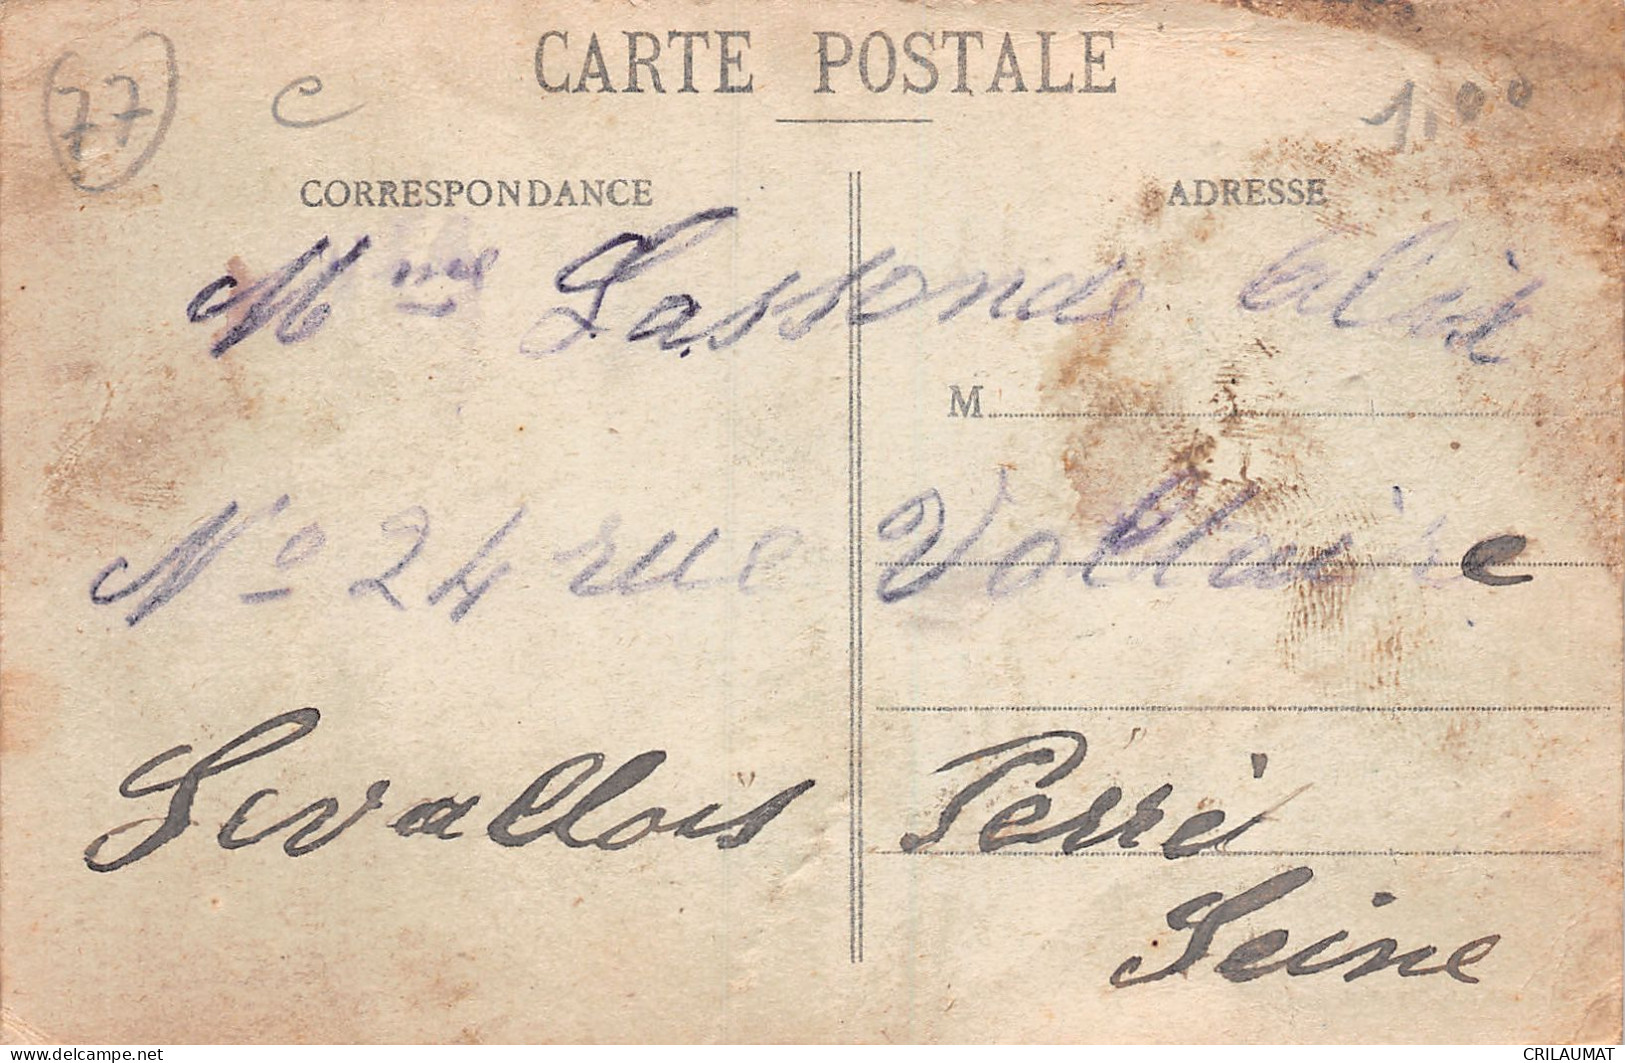 77 c CARTE POSTALE 1.00
CORRESPONDANCE ADRESSE
Mme Lassonde
M
No 24 rue Voltaire
Levallois Perré
Seine
delcampe.net
CRILAUMAT